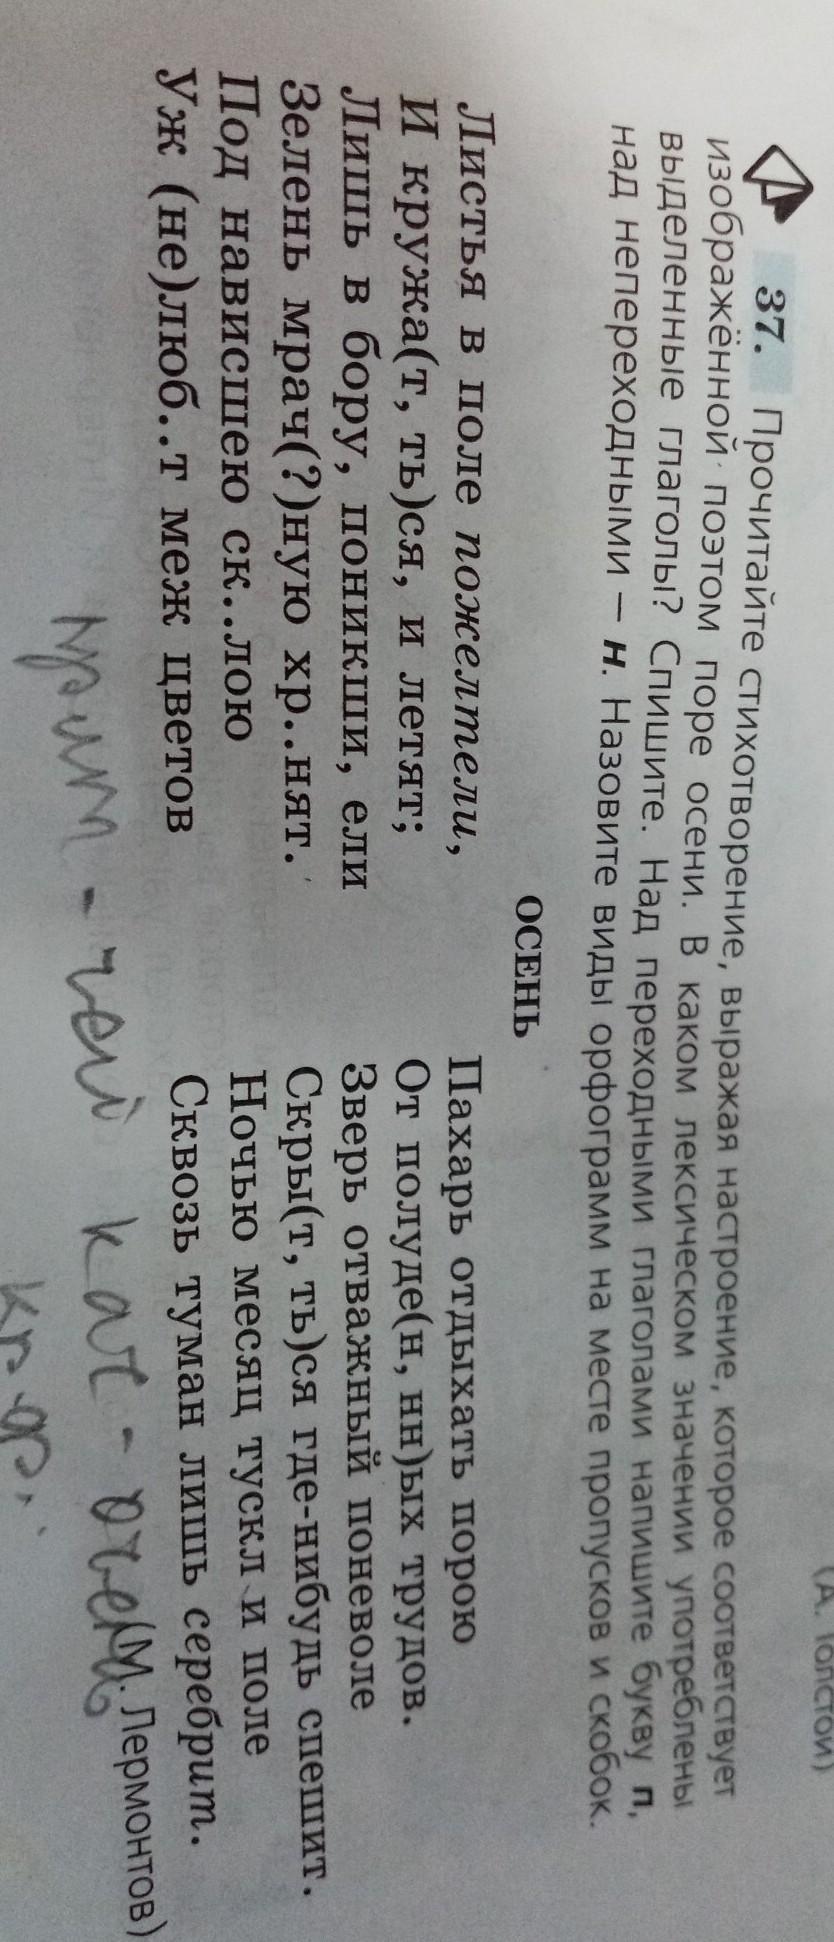 (А. Толстой)
37. Прочитайте стихотворение, выражая настроение, которое соответствует
изображённой поэтом поре осени. В каком лексическом значении употреблены
выделенные глаголы? Спишите. Над переходными глаголами напишите букву п,
над непереходными — н. Назовите виды орфограмм на месте пропусков и скобок.
ОСЕНЬ
Листья в поле пожелтели,
И кружа(т, ть)ся, и летят;
Лишь в бору, поникши, ели
Зелень мрач(?)ную хр..нят.
Под нависшею ск..лою
Уж (не)люб..т меж цветов
Пахарь отдыхать порою
От полуде(н, нн)ых трудов.
Зверь отважный поневоле
Скры(т, ть)ся где-нибудь спешит.
Ночью месяц тускл и поле
Сквозь туман лишь серебрит.
(М. Лермонтов)